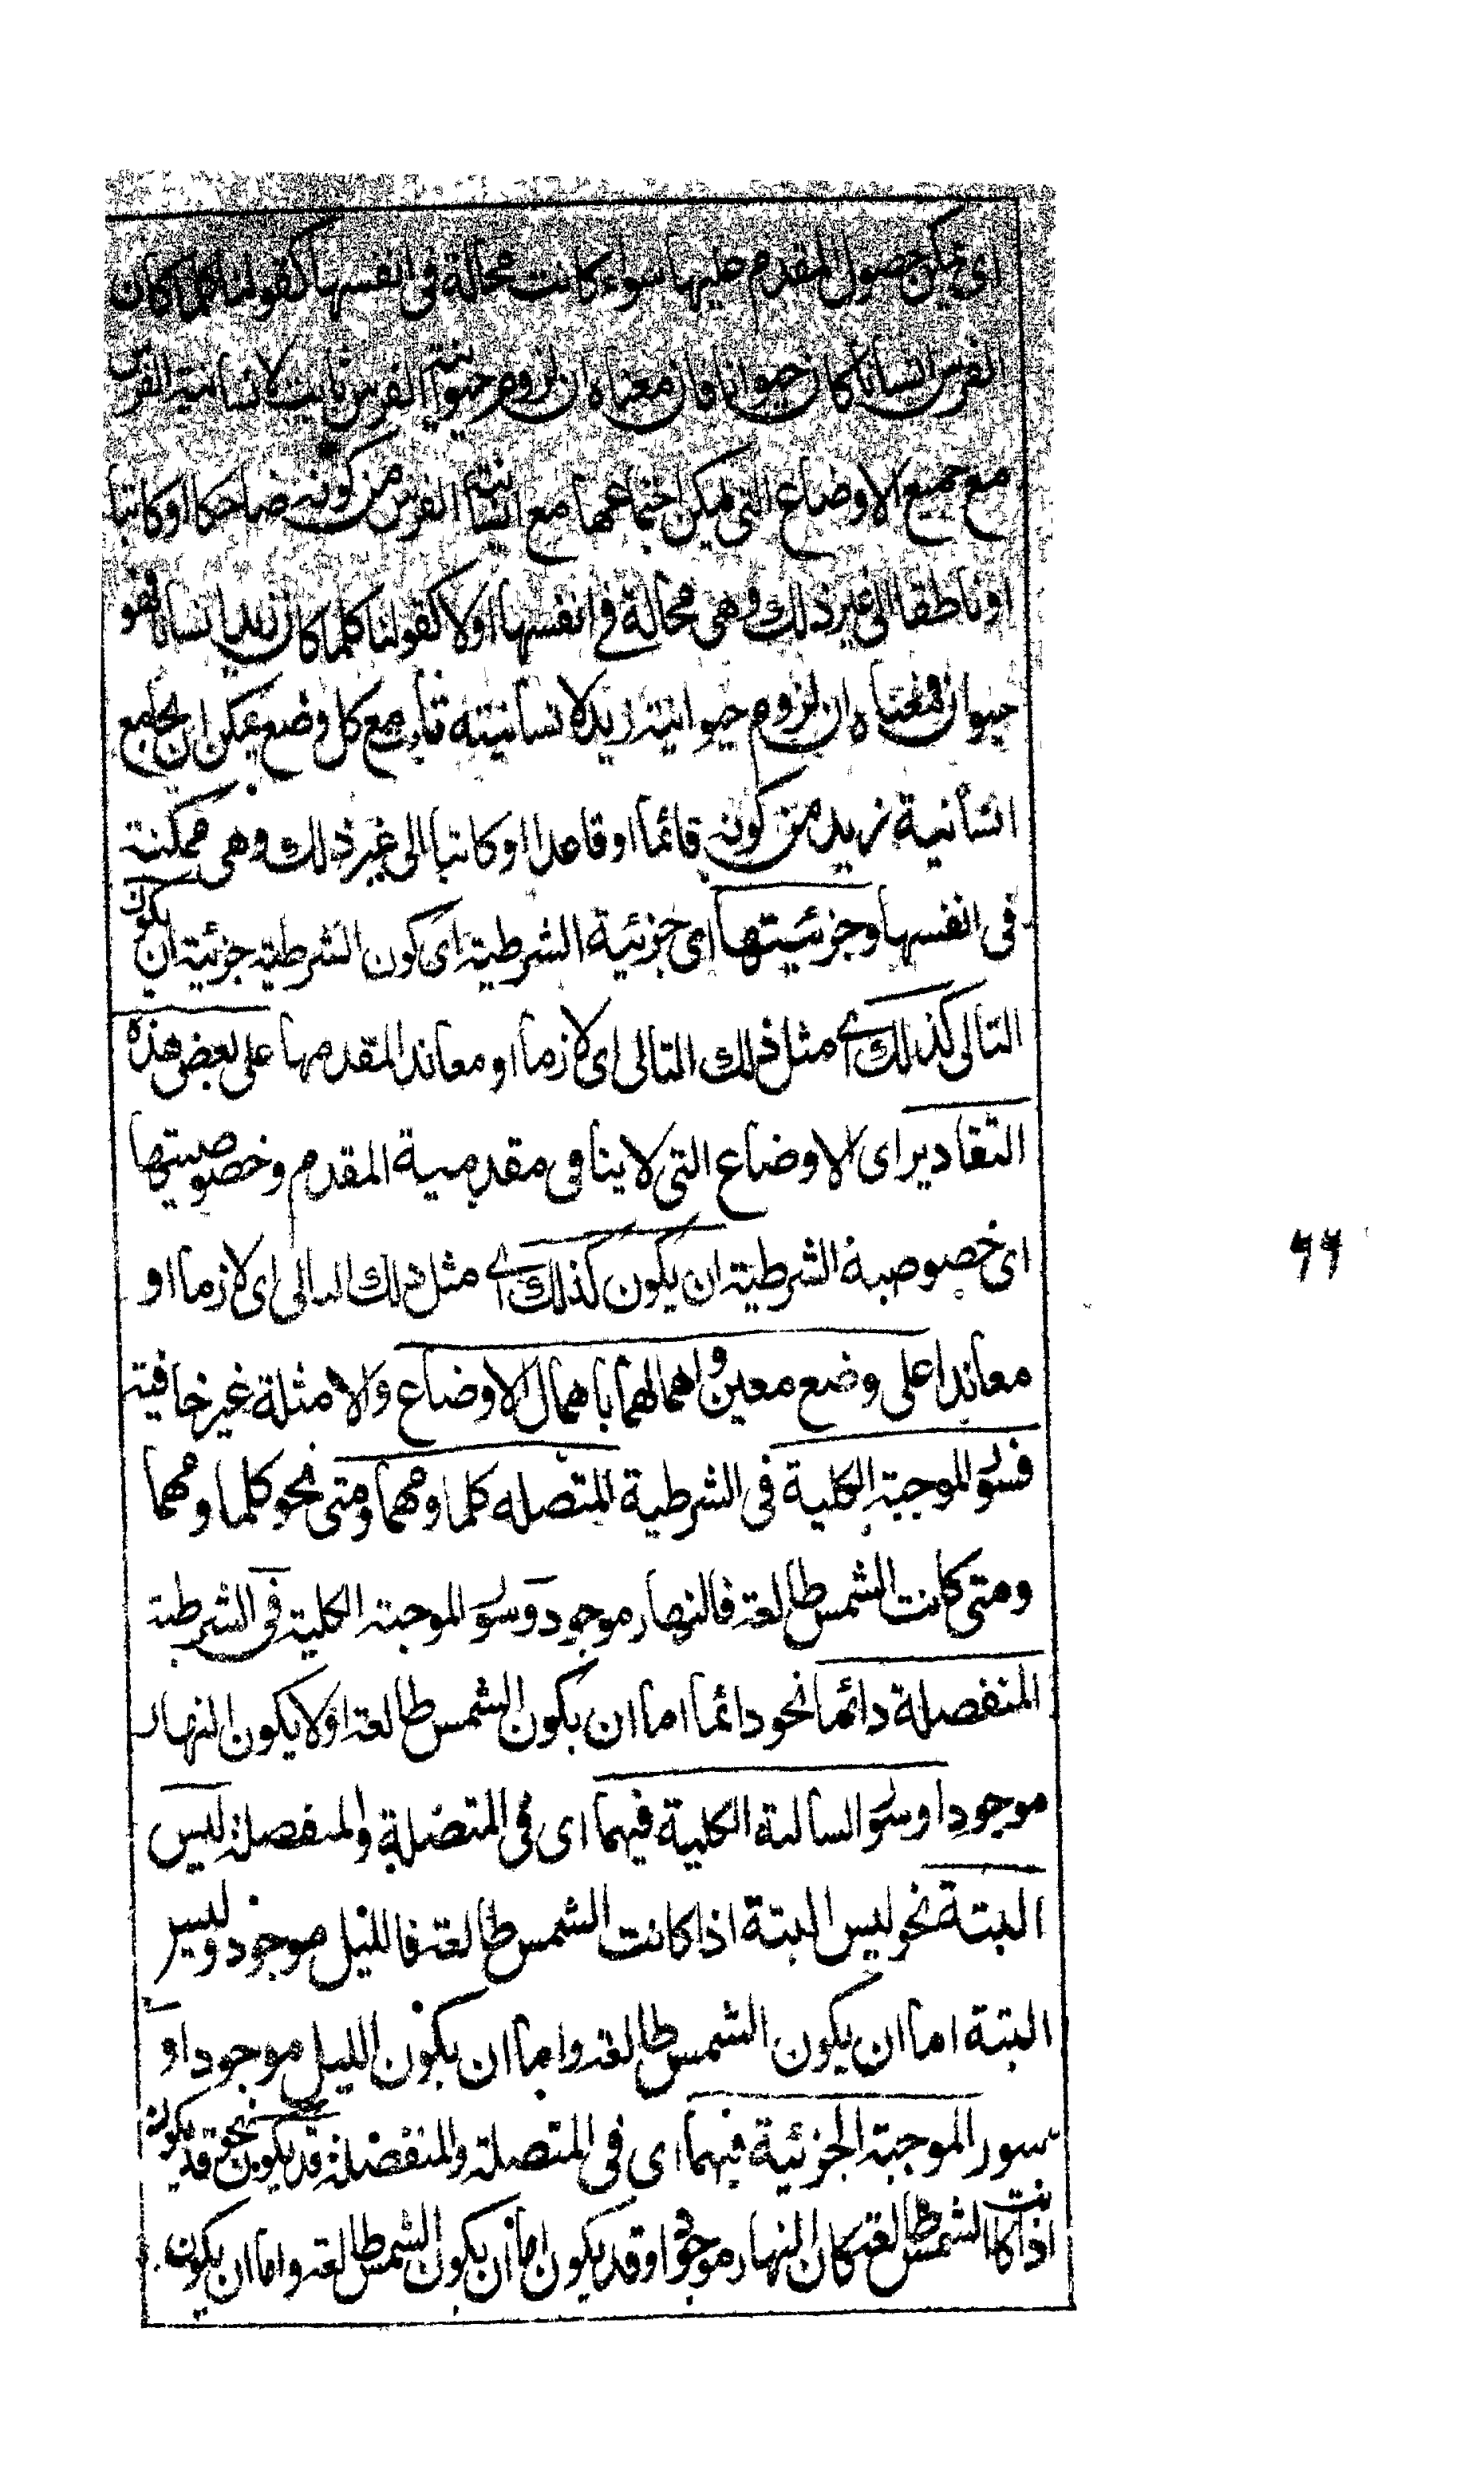 اى يمكن حصول المقدم عليها سواء كانت محالة فى انفسها كقولنا كلما كان
الفرس انسانا كان حيوانا فان معناه ان لزوم حيوانية الفرس ثابت لانسانية الفرس
مع جميع الاوضاع التى يمكن اجتماعها مع انسانية الفرس من كونه ضاحكا او كاتبا
او ناطقا الى غير ذلك وهى محالة فى انفسها اولا كقولنا كلما كان زيد انسانا فهو
حيوان فمعناه ان لزوم حيوانية زيد لانسانيته ثابت مع كل وضع يمكن ان يجامع
انسانية زيد من كونه قائما او قاعدا او كاتبا الى غير ذلك وهى ممكنة
فى انفسها وجزئيتها اى جزئية الشرطية اى كون الشرطية جزئية ان يكون
التالى كذلك اے مثل ذلك التالى اى لازما او معاندا لمقدمها على بعض هذه
التقادير اى الاوضاع التى لا ينافى مقدمية المقدم وخصوصيتها
اى خصوصية الشرطية ان يكون كذلك اے مثل ذلك التالى اى لازما او
معاندا على وضع معين واهمالهما باهمال الاوضاع والامثلة غير خافية
فسور الموجبة الكلية فى الشرطية المتصله كلما ومهما ومتى نحو كلما ومهما
ومتى كانت الشمس طالعة فالنهار موجود وسور الموجبة الكلية فى الشرطية
المنفصلة دائما نحو دائما اما ان يكون الشمس طالعة او لا يكون النهار
موجودا وسور السالبة الكلية فيهما اى فى المتصلة والمنفصلة ليس
البتة نحو ليس البتة اذا كانت الشمس طالعة فالليل موجود وليس
البتة اما ان يكون الشمس طالعة واما ان يكون الليل موجودا و
سور الموجبة الجزئية فيهما اى فى المتصلة والمنفصلة قد يكون نحو قد يكون
اذا كانت الشمس طالعة كان النهار موجودا وقد يكون اما ان يكون الشمس طالعة واما ان يكون
٦٦